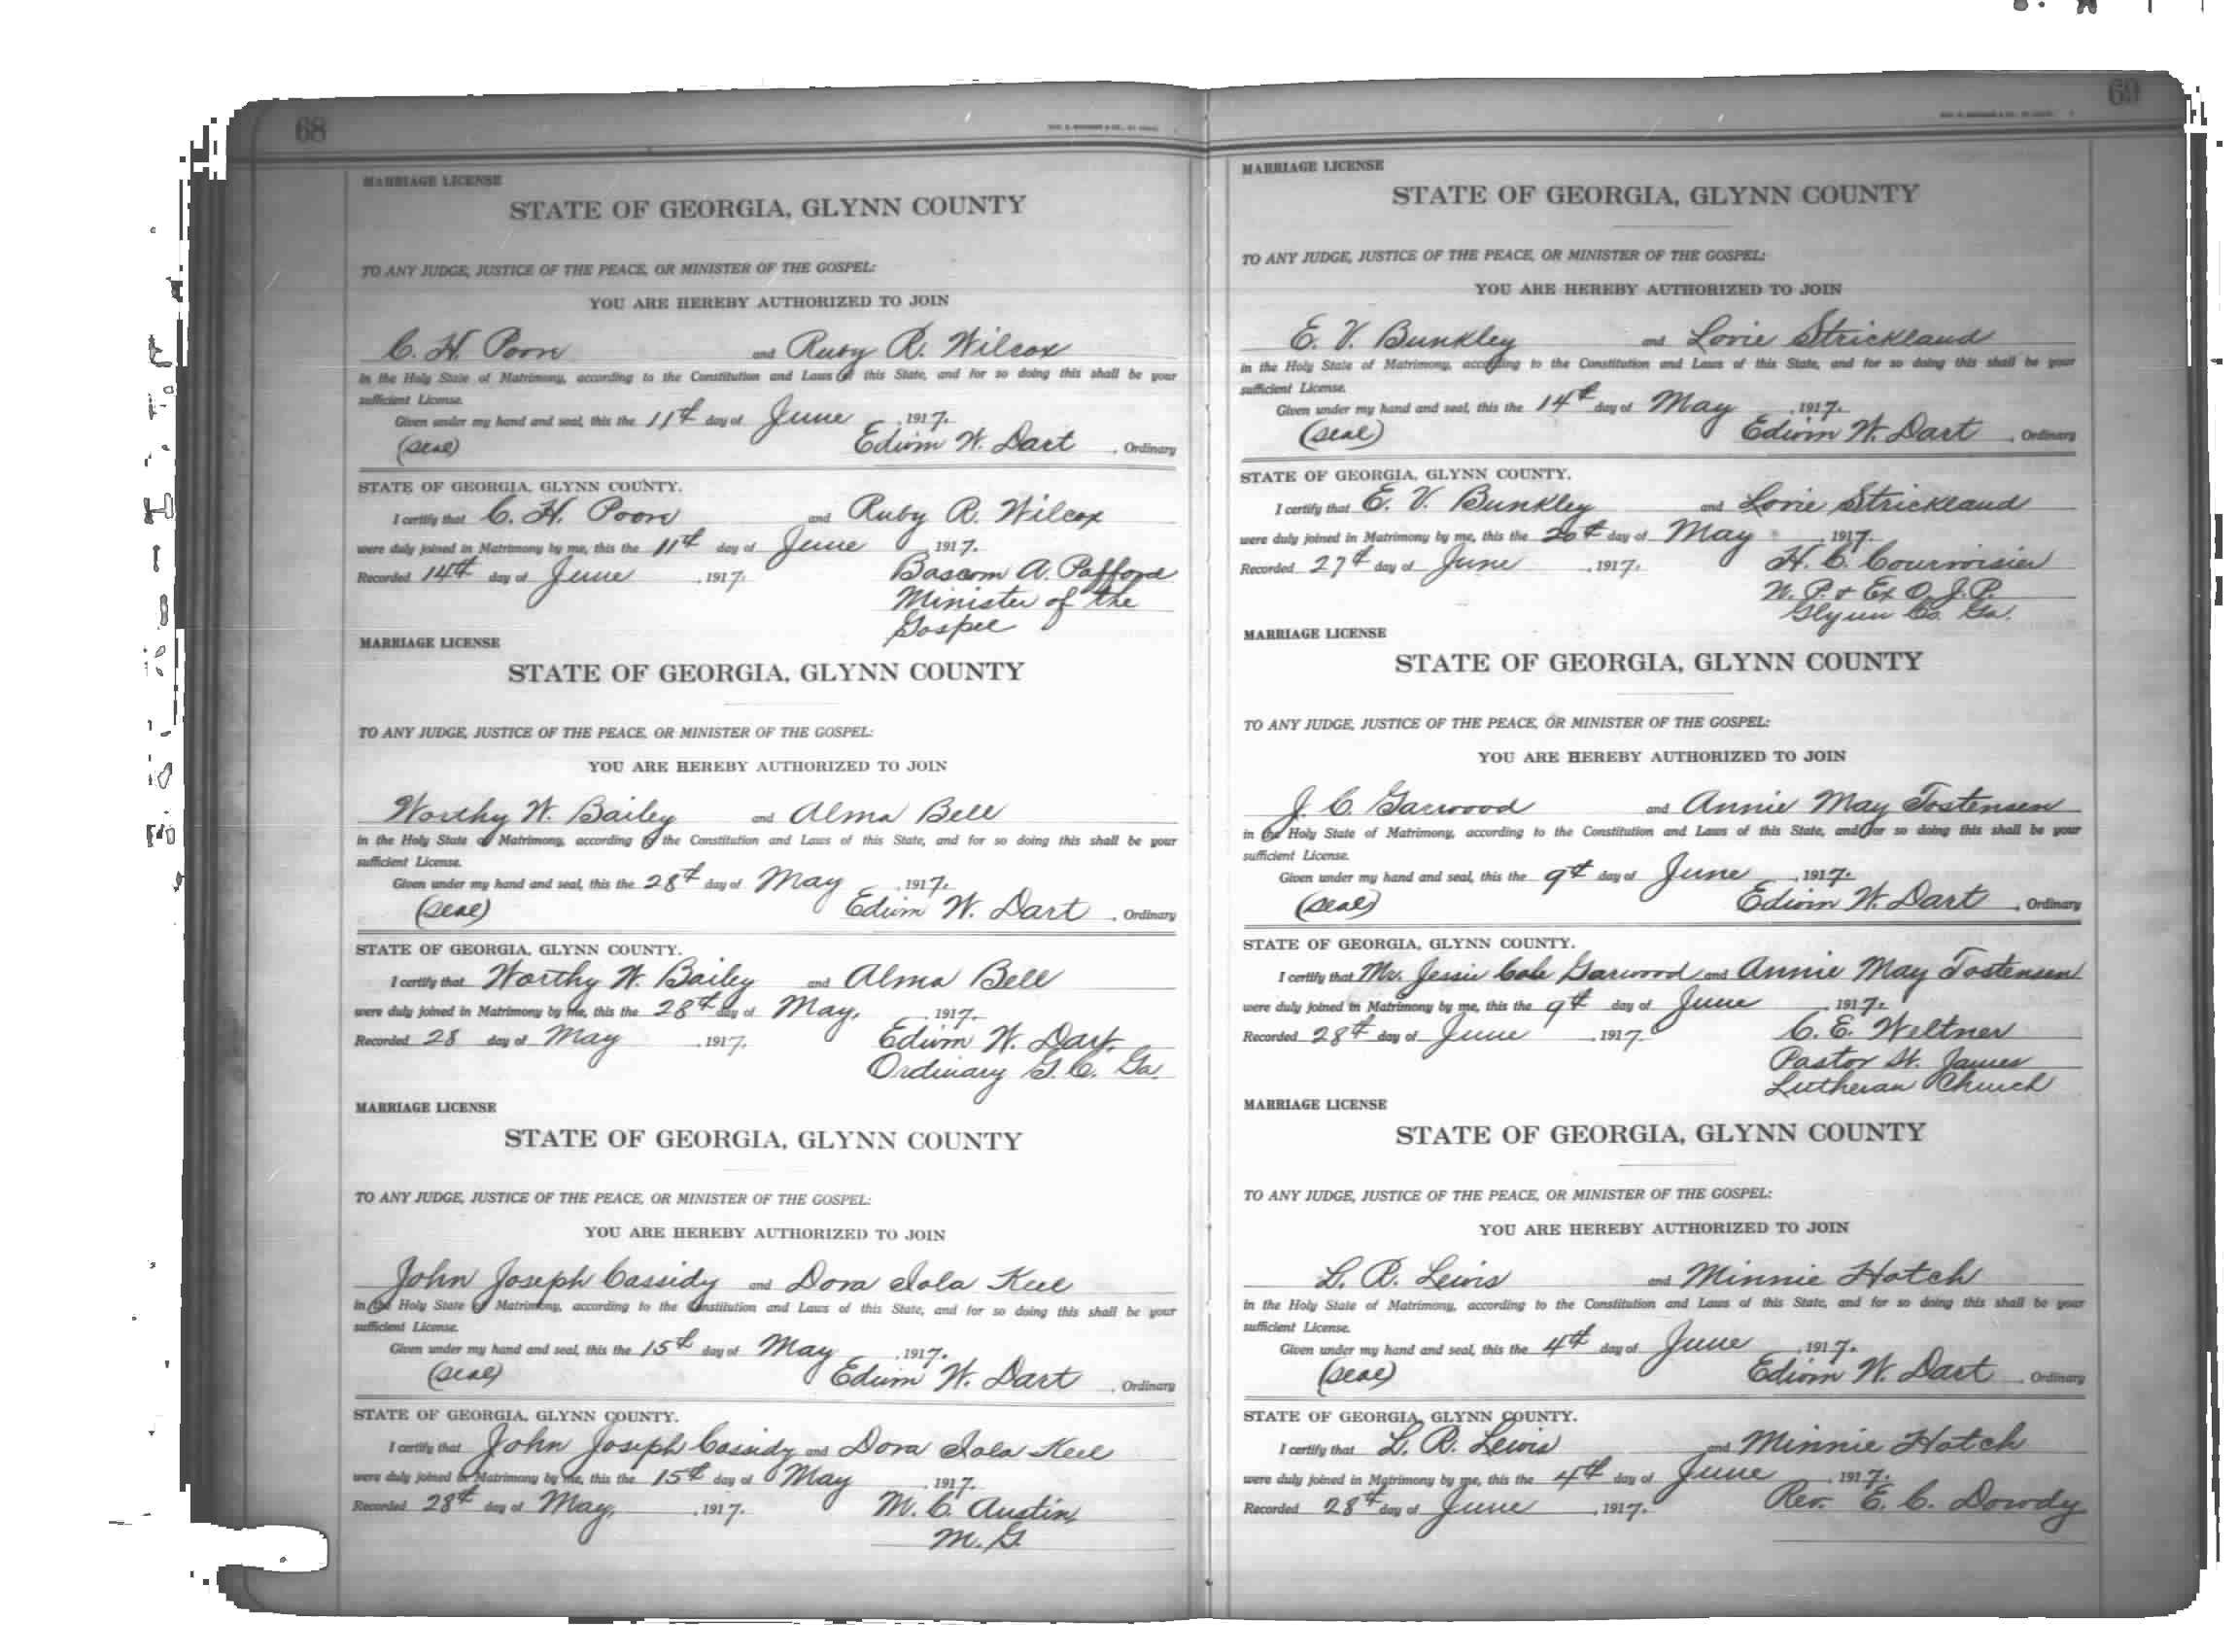 68
MARRIAGE LICENSE
STATE OF GEORGIA, GLYNN COUNTY
TO ANY JUDGE, JUSTICE OF THE PEACE, OR MINISTER OF THE GOSPEL:
YOU ARE HEREBY AUTHORIZED TO JOIN
C. H. Poon and Ruby R. Wilcox
in the Holy State of Matrimony, according to the Constitution and Laws of this State, and for so doing this shall be your
sufficient License.
Given under my hand and seal, this the 11th day of June, 1917.
(Seal) Edwin W. Dart, Ordinary
STATE OF GEORGIA, GLYNN COUNTY.
I certify that C. H. Poon and Ruby R. Wilcox
were duly joined in Matrimony by me, this the 11th day of June 1917.
Recorded 14th day of June, 1917. Bascom A. Pafford
Minister of the
Gospel
MARRIAGE LICENSE
STATE OF GEORGIA, GLYNN COUNTY
TO ANY JUDGE, JUSTICE OF THE PEACE, OR MINISTER OF THE GOSPEL:
YOU ARE HEREBY AUTHORIZED TO JOIN
Worthy W. Bailey and Alma Bell
in the Holy State of Matrimony, according to the Constitution and Laws of this State, and for so doing this shall be your
sufficient License.
Given under my hand and seal, this the 28th day of May, 1917.
(Seal) Edwin W. Dart, Ordinary
STATE OF GEORGIA, GLYNN COUNTY.
I certify that Worthy W. Bailey and Alma Bell
were duly joined in Matrimony by me, this the 28th day of May, 1917.
Recorded 28 day of May, 1917. Edwin W. Dart.
Ordinary G. C. Ga.
MARRIAGE LICENSE
STATE OF GEORGIA, GLYNN COUNTY
TO ANY JUDGE, JUSTICE OF THE PEACE, OR MINISTER OF THE GOSPEL:
YOU ARE HEREBY AUTHORIZED TO JOIN
John Joseph Cassidy and Dora Iola Keel
in the Holy State of Matrimony, according to the Constitution and Laws of this State, and for so doing this shall be your
sufficient License.
Given under my hand and seal, this the 15th day of May, 1917.
(Seal) Edwin W. Dart, Ordinary
STATE OF GEORGIA, GLYNN COUNTY.
I certify that John Joseph Cassidy and Dora Iola Keel
were duly joined in Matrimony by me, this the 15th day of May, 1917.
Recorded 28th day of May, 1917. M. C. Austin,
M. G.
69
MARRIAGE LICENSE
STATE OF GEORGIA, GLYNN COUNTY
TO ANY JUDGE, JUSTICE OF THE PEACE, OR MINISTER OF THE GOSPEL:
YOU ARE HEREBY AUTHORIZED TO JOIN
E. V. Bunkley and Lovie Strickland
in the Holy State of Matrimony, according to the Constitution and Laws of this State, and for so doing this shall be your
sufficient License.
Given under my hand and seal, this the 14th day of May, 1917.
(Seal) Edwin W. Dart, Ordinary
STATE OF GEORGIA, GLYNN COUNTY.
I certify that E. V. Bunkley and Lovie Strickland
were duly joined in Matrimony by me, this the 20th day of May, 1917.
Recorded 27th day of June, 1917. H. C. Courvoisier
N. P. & Ex O. J. P.
Glynn Co. Ga.
MARRIAGE LICENSE
STATE OF GEORGIA, GLYNN COUNTY
TO ANY JUDGE, JUSTICE OF THE PEACE, OR MINISTER OF THE GOSPEL:
YOU ARE HEREBY AUTHORIZED TO JOIN
J. C. Garwood and Annie May Tostensen
in the Holy State of Matrimony, according to the Constitution and Laws of this State, and for so doing this shall be your
sufficient License.
Given under my hand and seal, this the 9th day of June, 1917.
(Seal) Edwin W. Dart, Ordinary
STATE OF GEORGIA, GLYNN COUNTY.
I certify that Mr. Jessie Cole Garwood and Annie May Tostensen
were duly joined in Matrimony by me, this the 9th day of June, 1917.
Recorded 28th day of June, 1917. C. E. Weltner
Pastor St. James
Lutheran Church
MARRIAGE LICENSE
STATE OF GEORGIA, GLYNN COUNTY
TO ANY JUDGE, JUSTICE OF THE PEACE, OR MINISTER OF THE GOSPEL:
YOU ARE HEREBY AUTHORIZED TO JOIN
L. R. Lewis and Minnie Hatch
in the Holy State of Matrimony, according to the Constitution and Laws of this State, and for so doing this shall be your
sufficient License.
Given under my hand and seal, this the 4th day of June, 1917.
(Seal) Edwin W. Dart, Ordinary
STATE OF GEORGIA, GLYNN COUNTY.
I certify that L. R. Lewis and Minnie Hatch
were duly joined in Matrimony by me, this the 4th day of June, 1917.
Recorded 28th day of June, 1917. Rev. E. C. Dowdy